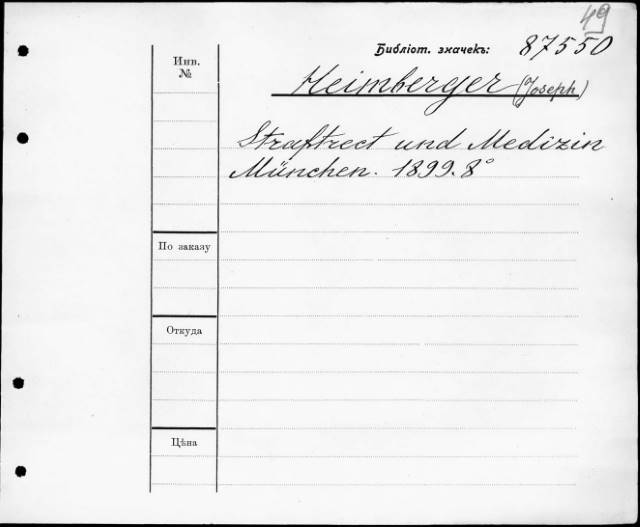 49
Библіот. значекъ: 87550
Инв.
№
Heimberger (Joseph)
Straftrect und Medizin
München. 1899. 8°
По заказу
Откуда
Цѣна